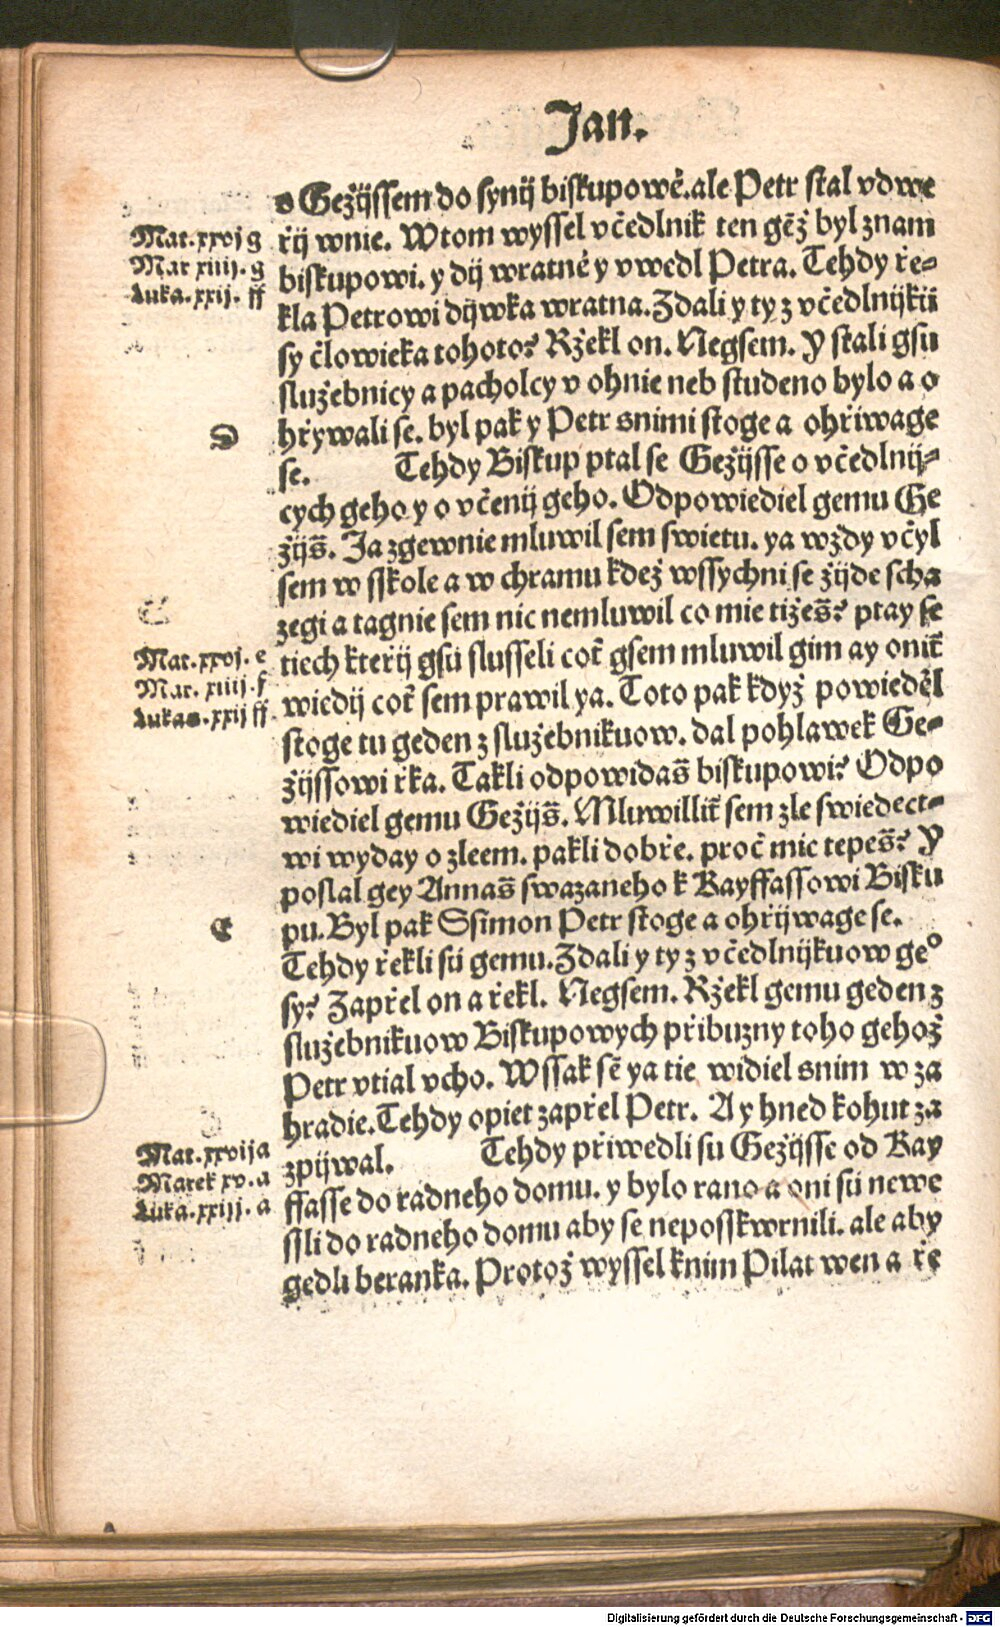 Jan.
s Gežijssem do synij biskupowě. ale Petr stal vdwe
Mat. xxvj g
řij wnie. Wtom wyssel včedlnik ten gēž byl znam
Mar xiiij. g
biskupowi. y dij wratné y vwedl Petra. Tehdy ře-
Luka. xxij. ff
kla Petrowi dijwka wratna. Zdali y ty z včedlnijkū
sy člowieka tohoto? Ržekl on. Negsem. Y stali gsu
služebnicy a pacholcy v ohnie neb studeno bylo a o
D
hřywali se. byl pak y Petr snimi stoge a ohřiwage
se. Tehdy Biskup ptal se Gežijsse o včedlnij-
cych geho y o včenij geho. Odpowiediel gemu Ge
žijs̄. Ja zgewnie mluwil sem swietu. ya wždy včyl
sem w sskole a w chramu kdež wssychni se žijde scha
zegi a tagnie sem nic nemluwil co mie tižes̄? ptay se
Mat. xxvj. e
tiech kteřij gsú slusseli coť gsem mluwil gim ay oniť
Mar. xiiij. f
wiedij coť sem prawil ya. Toto pak když powieděl
Lukas. xxij ff
stoge tu geden z služebnikuow. dal pohlawek Ge-
žijssowi řka. Takli odpowidas̄ biskupowi? Odpo
wiediel gemu Gežijs̄. Mluwilliť sem zle swiedect-
wi wyday o zleem. pakli dobře. proč mie tepes̄? Y
poslal gey Annas̄ swazaneho k Kayffassowi Bisku
E
pu. Byl pak Ssimon Petr stoge a ohřijwage se.
Tehdy řekli sú gemu. Zdali y ty z včedlnijkuow geº
sy? Zapřel on a řekl. Negsem. Ržekl gemu geden z
služebnikuow Biskupowych přibuzny toho gehož
Petr vtial vcho. Wssak sē ya tie widiel snim w za
hradie. Tehdy opiet zapřel Petr. A y hned kohut za
Mat. xxvij a
zpijwal. Tehdy přiwedli su Gežijsse od Kay
Marek xv. a
ffasse do radneho domu. y bylo rano a oni sú newe
Luka. xxiij. a
ssli do radneho domu aby se neposskwrnili. ale aby
gedli beranka. Protož wyssel knim Pilat wen a ře
Digitalisierung gefördert durch die Deutsche Forschungsgemeinschaft - DFG